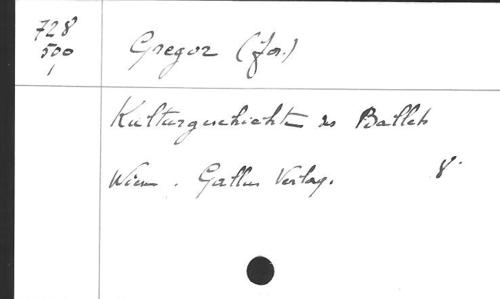 728
500
Gregor (Jos.)
Kulturgeschichte des Ballets
Wien. Gallus Verlag. 8°